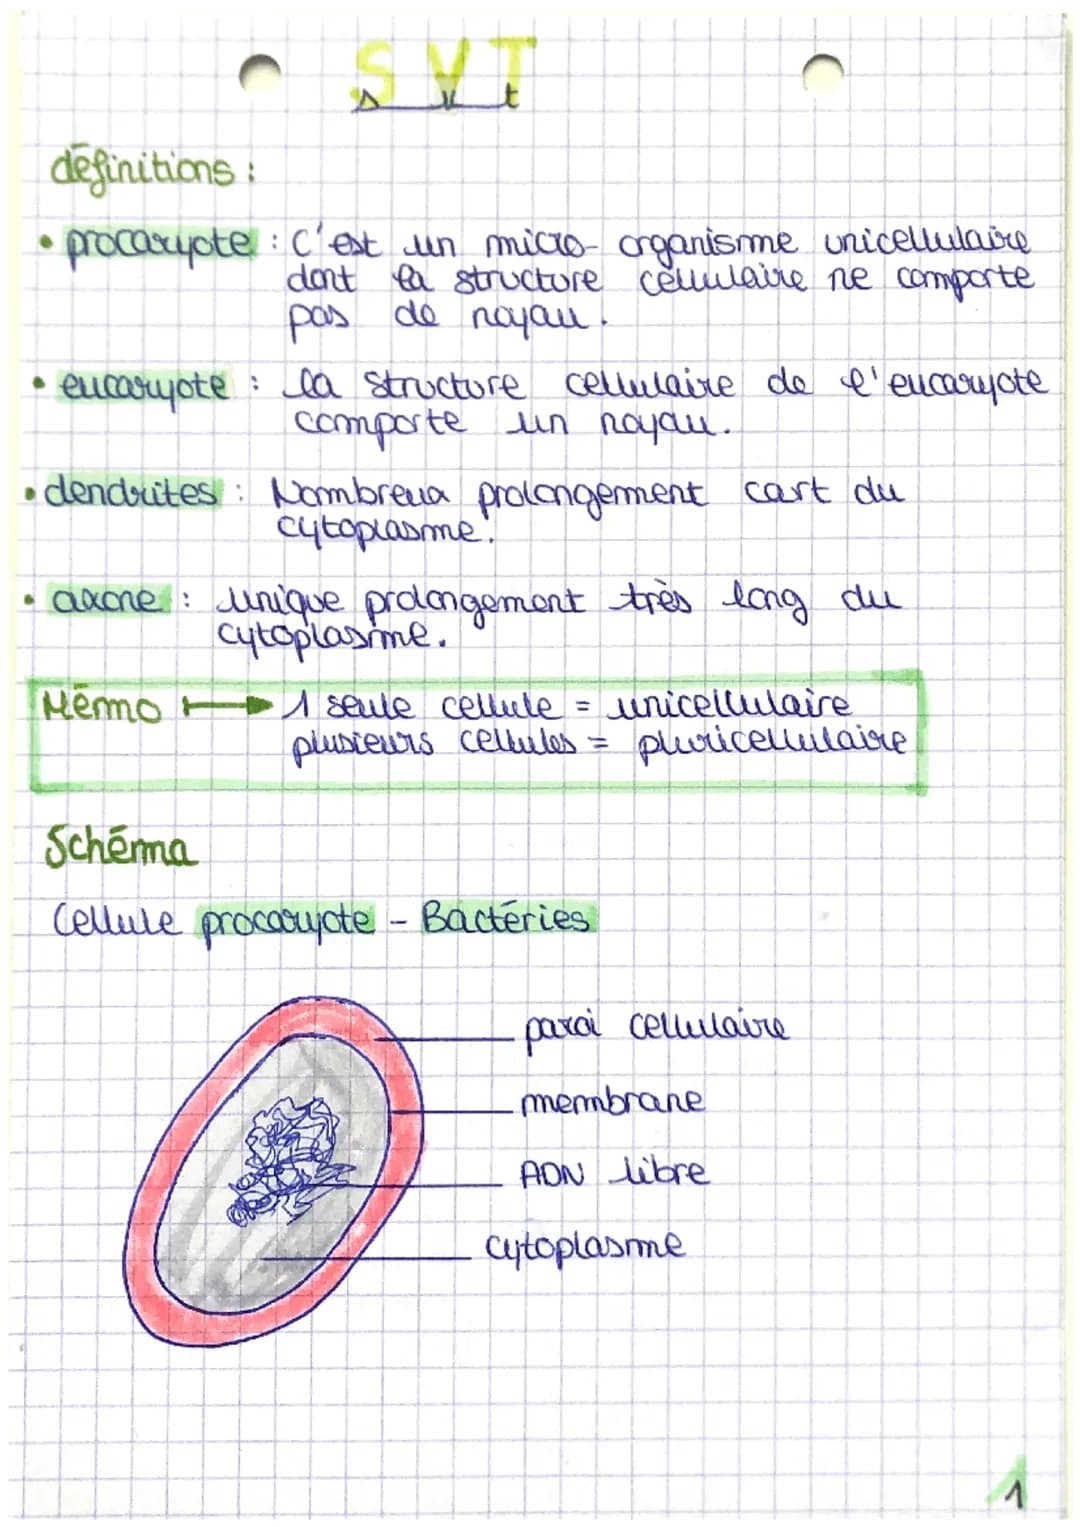 SVT
s v t
définitions :
• procaryote : c'est un micro-organisme unicellulaire
dont la structure cellulaire ne comporte
pas de noyau.
• eucaryote : la structure cellulaire de l'eucaryote
comporte un noyau.
• dendrites : Nombreux prolongement cort du
cytoplasme.
• axone : unique prolongement très long du
cytoplasme.
Mémo → 1 seule cellule = unicellulaire
plusieurs cellules = pluricellulaire
Schéma
Cellule procaryote - Bactéries
paroi cellulaire
membrane
ADN libre
cytoplasme
1